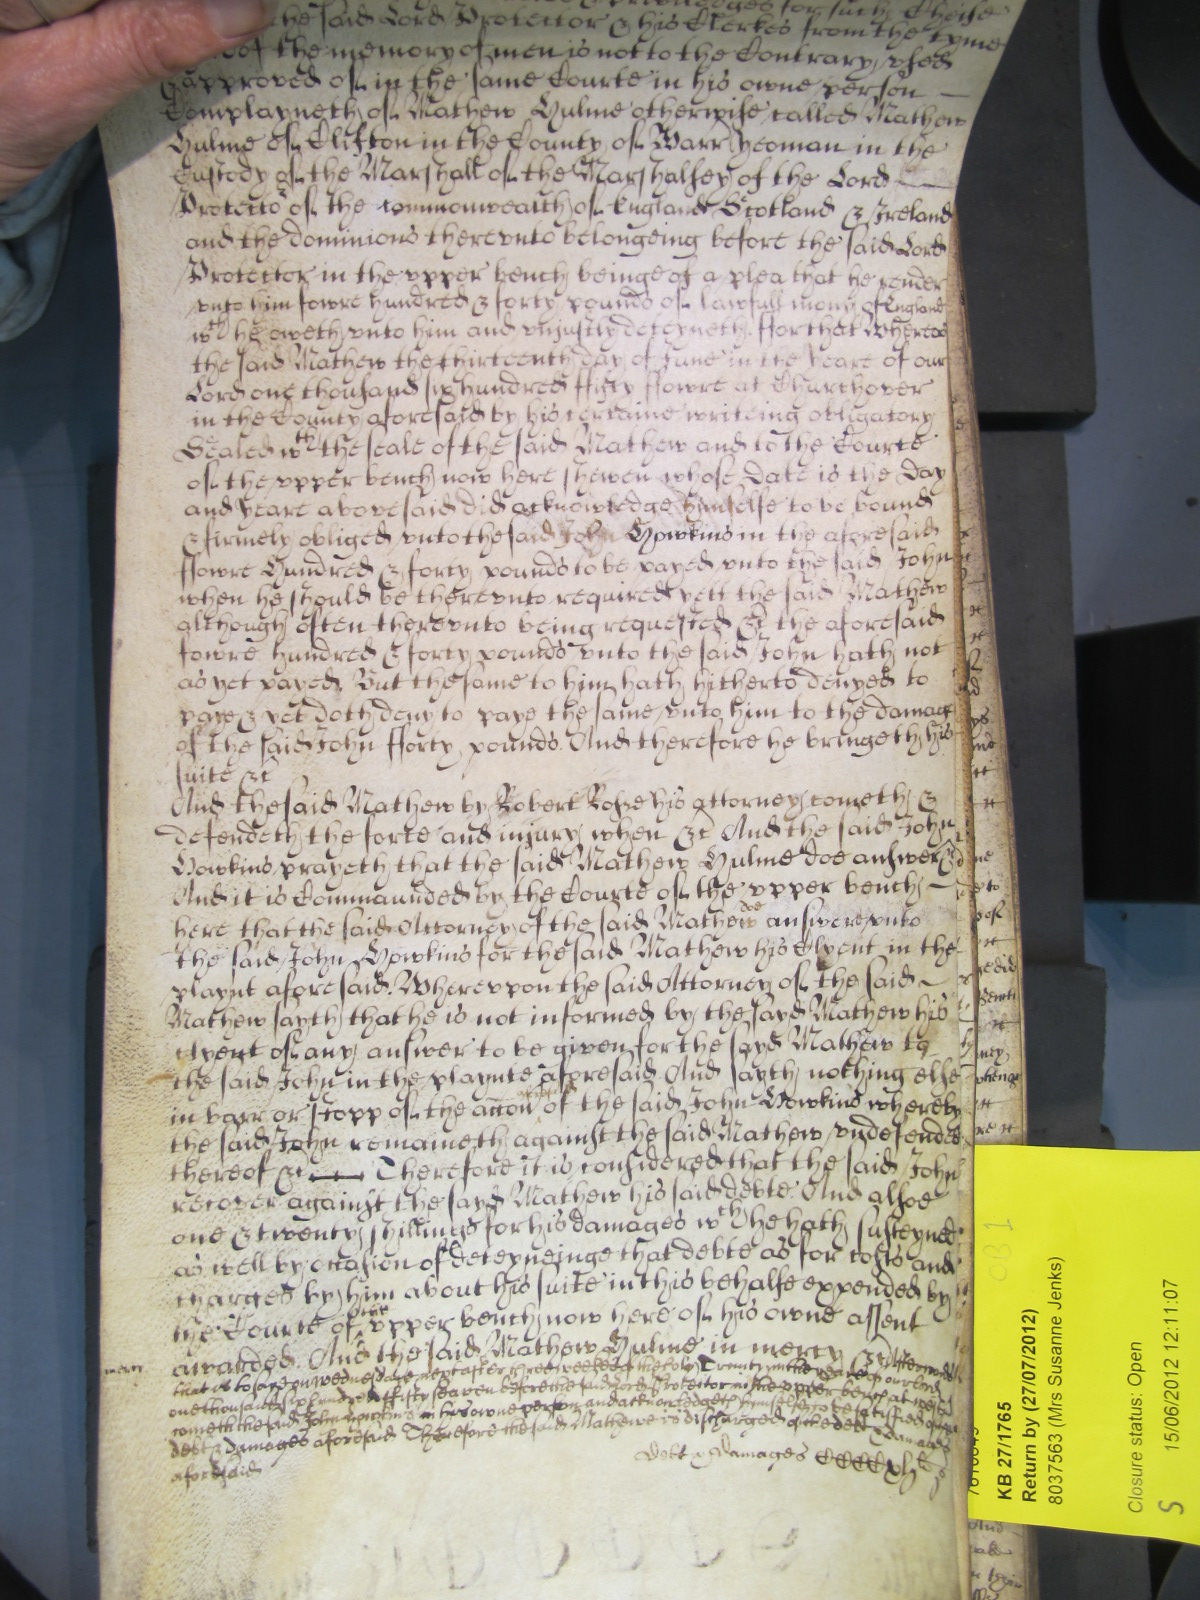 priviledges for such Theise
the said Lord Protector & his Clerkes from the tyme
of the memory of men is not to the Contrary vsed
& approved of in the same Courte in his owne person
Complayneth of Mathew Hulme otherwise called Mathew
Hulme of Clifton in the County of Warr yeoman in the
Custody of the Marshall of the Marshalsey of the Lord
Protector of the commonwealth of England Scotland & Ireland
and the dominions therevnto belongeing before the said Lord
Protector in the vpper bench beinge of a plea that he render
vnto him fowre hundred & forty pounds of lawfull mony of England
wch he oweth vnto him and vniustly deteyneth. ffor that Whereas
the said Mathew the thirteenth day of June in the yeare of our
Lord one thousand six hundred ffifty ffowre at Churchover
in the County aforesaid by his certaine writeing obligatory
Sealed wth the seale of the said Mathew and to the Courte
of the vpper bench now here shewen whose date is the day
and yeare abovesaid did acknowledge himselfe to be bound
& firmely obliged vnto the said John Howkins in the aforesaid
ffowre Hundred & forty pounds to be payed vnto the said John
when he should be therevnto required yett the said Mathew
although often therevnto being requested &c the aforesaid
fowre hundred & forty pounds vnto the said John hath not
as yet payed. But the same to him hath hitherto denyed to
paye & yet doth deny to paye the same vnto him to the damage
of the said John fforty pounds. And therefore he bringeth his
suite &c
And the said Mathew by Robert Rose his attorney cometh &
defendeth the force and iniury when &c And the said John
Howkins prayeth that the said Mathew Hulme doe answer &c
And it is Commaunded by the Courte of the vpper bench
here that the said Attorney of the said Mathew doe answere vnto
the said John Howkins for the said Mathew his Clyent in the
playnt aforesaid. Wherevpon the said Attorney of the said
Mathew sayth that he is not informed by the sayd Mathew his
clyent of any answer to be given for the sayd Mathew to
the said John in the playnte aforesaid And sayth nothing else
in barr or stopp of the accon of the said John Howkins whereby
the said John remaineth against the said Mathew vndefended
thereof &c Therefore it is considered that the said John
recover against the sayd Mathew his said debte. And alsoe
one & twenty shillings for his damages wch he hath susteyned
as well by occasion of deteyneinge that debte as for costs and
charges by him about his suite in this behalfe expended by
the Courte of the vpper bench now here of his owne assent
awarded. And the said Mathew Hulme in mercy &c Afterwards
mercy
that is to say on wednesdaye next after three weekes of the holy Trinity in the yeare of our Lord
one thousand six hundred ffifty seaven before the said Lord Protector in the vpper bench at westm
cometh the said John Howkins in his owne person and acknowledgeth himselfe to be satisfied of the
debt & damages aforesaid Therefore the said Mathewe is discharged of the debt & damages
aforesaid
Debt & Damages CCCCxlj li
CB 1
KB 27/1765
Return by (27/07/2012)
8037563 (Mrs Susanne Jenks)
Closure status: Open
15/06/2012 12:11:07
S